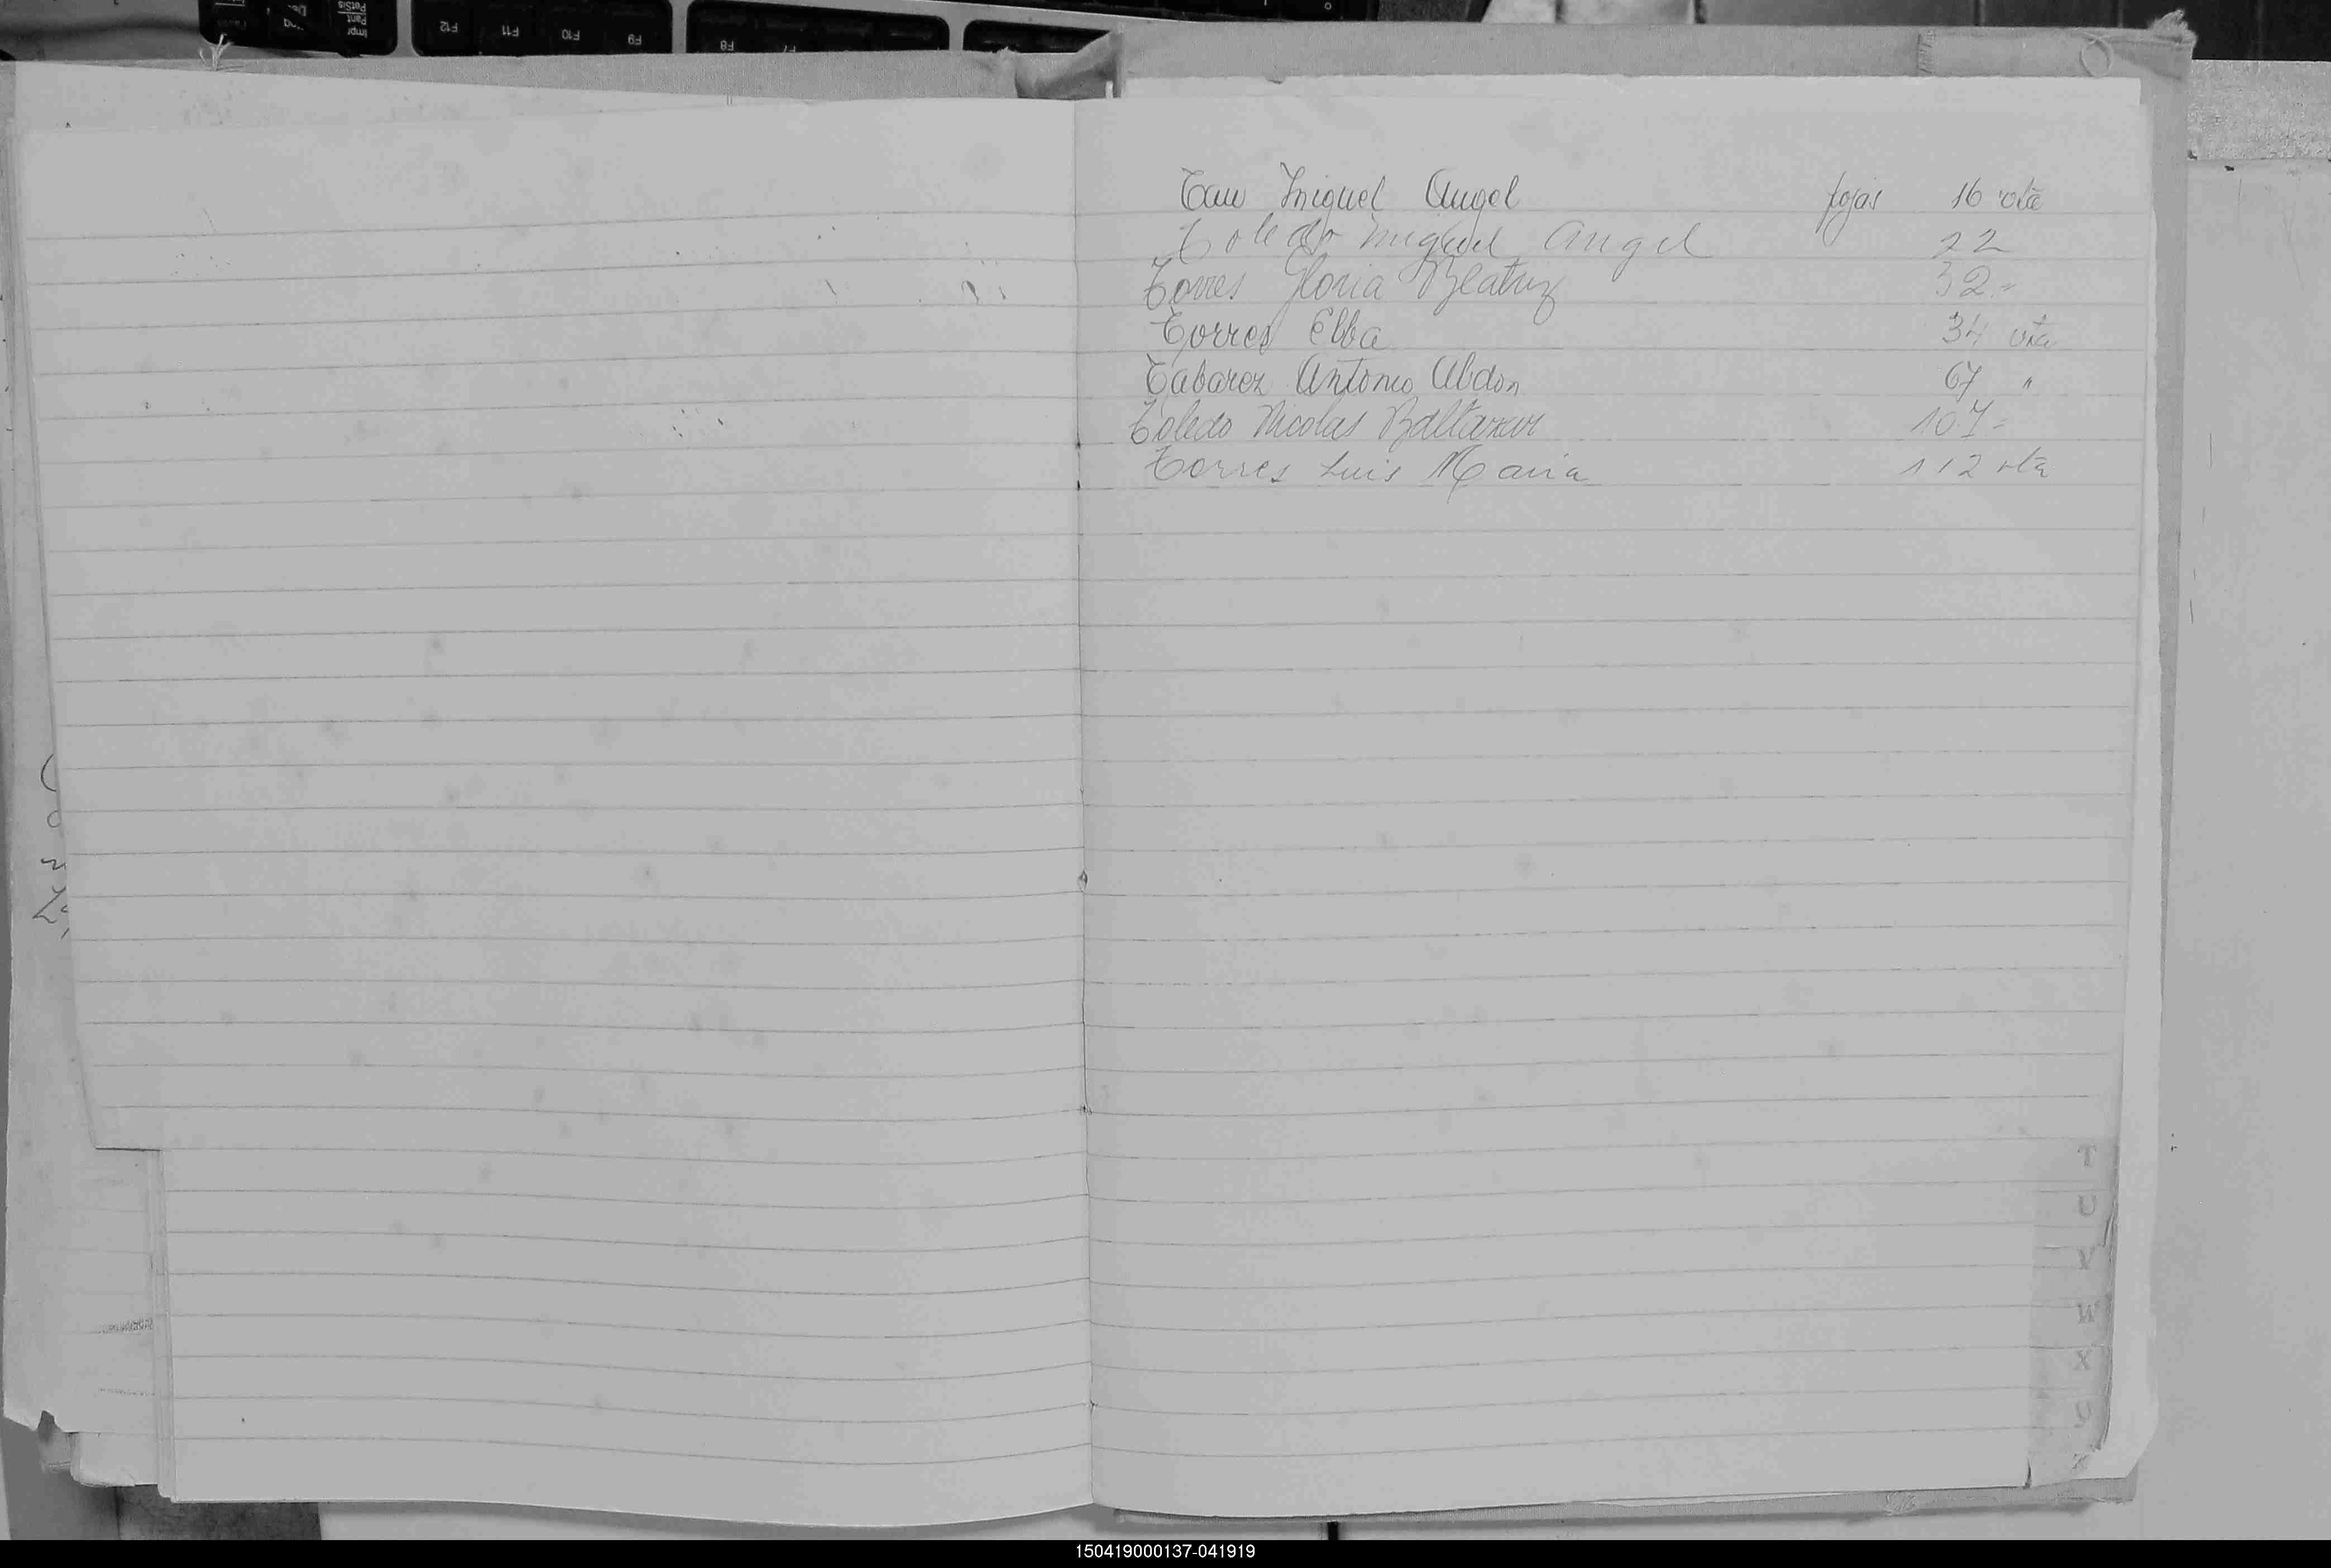 Tau Miguel Angel fojas 16 vta
Toledo Miguel Angel 22
Torres Gloria Beatriz 32 -
Torres Elba 34 vta
Tabarez Antonio Abdon 67 "
Toledo Nicolas Baltazar 107 -
Torres Luis Maria 112 vta
T
U
W
X
150419000137-041919